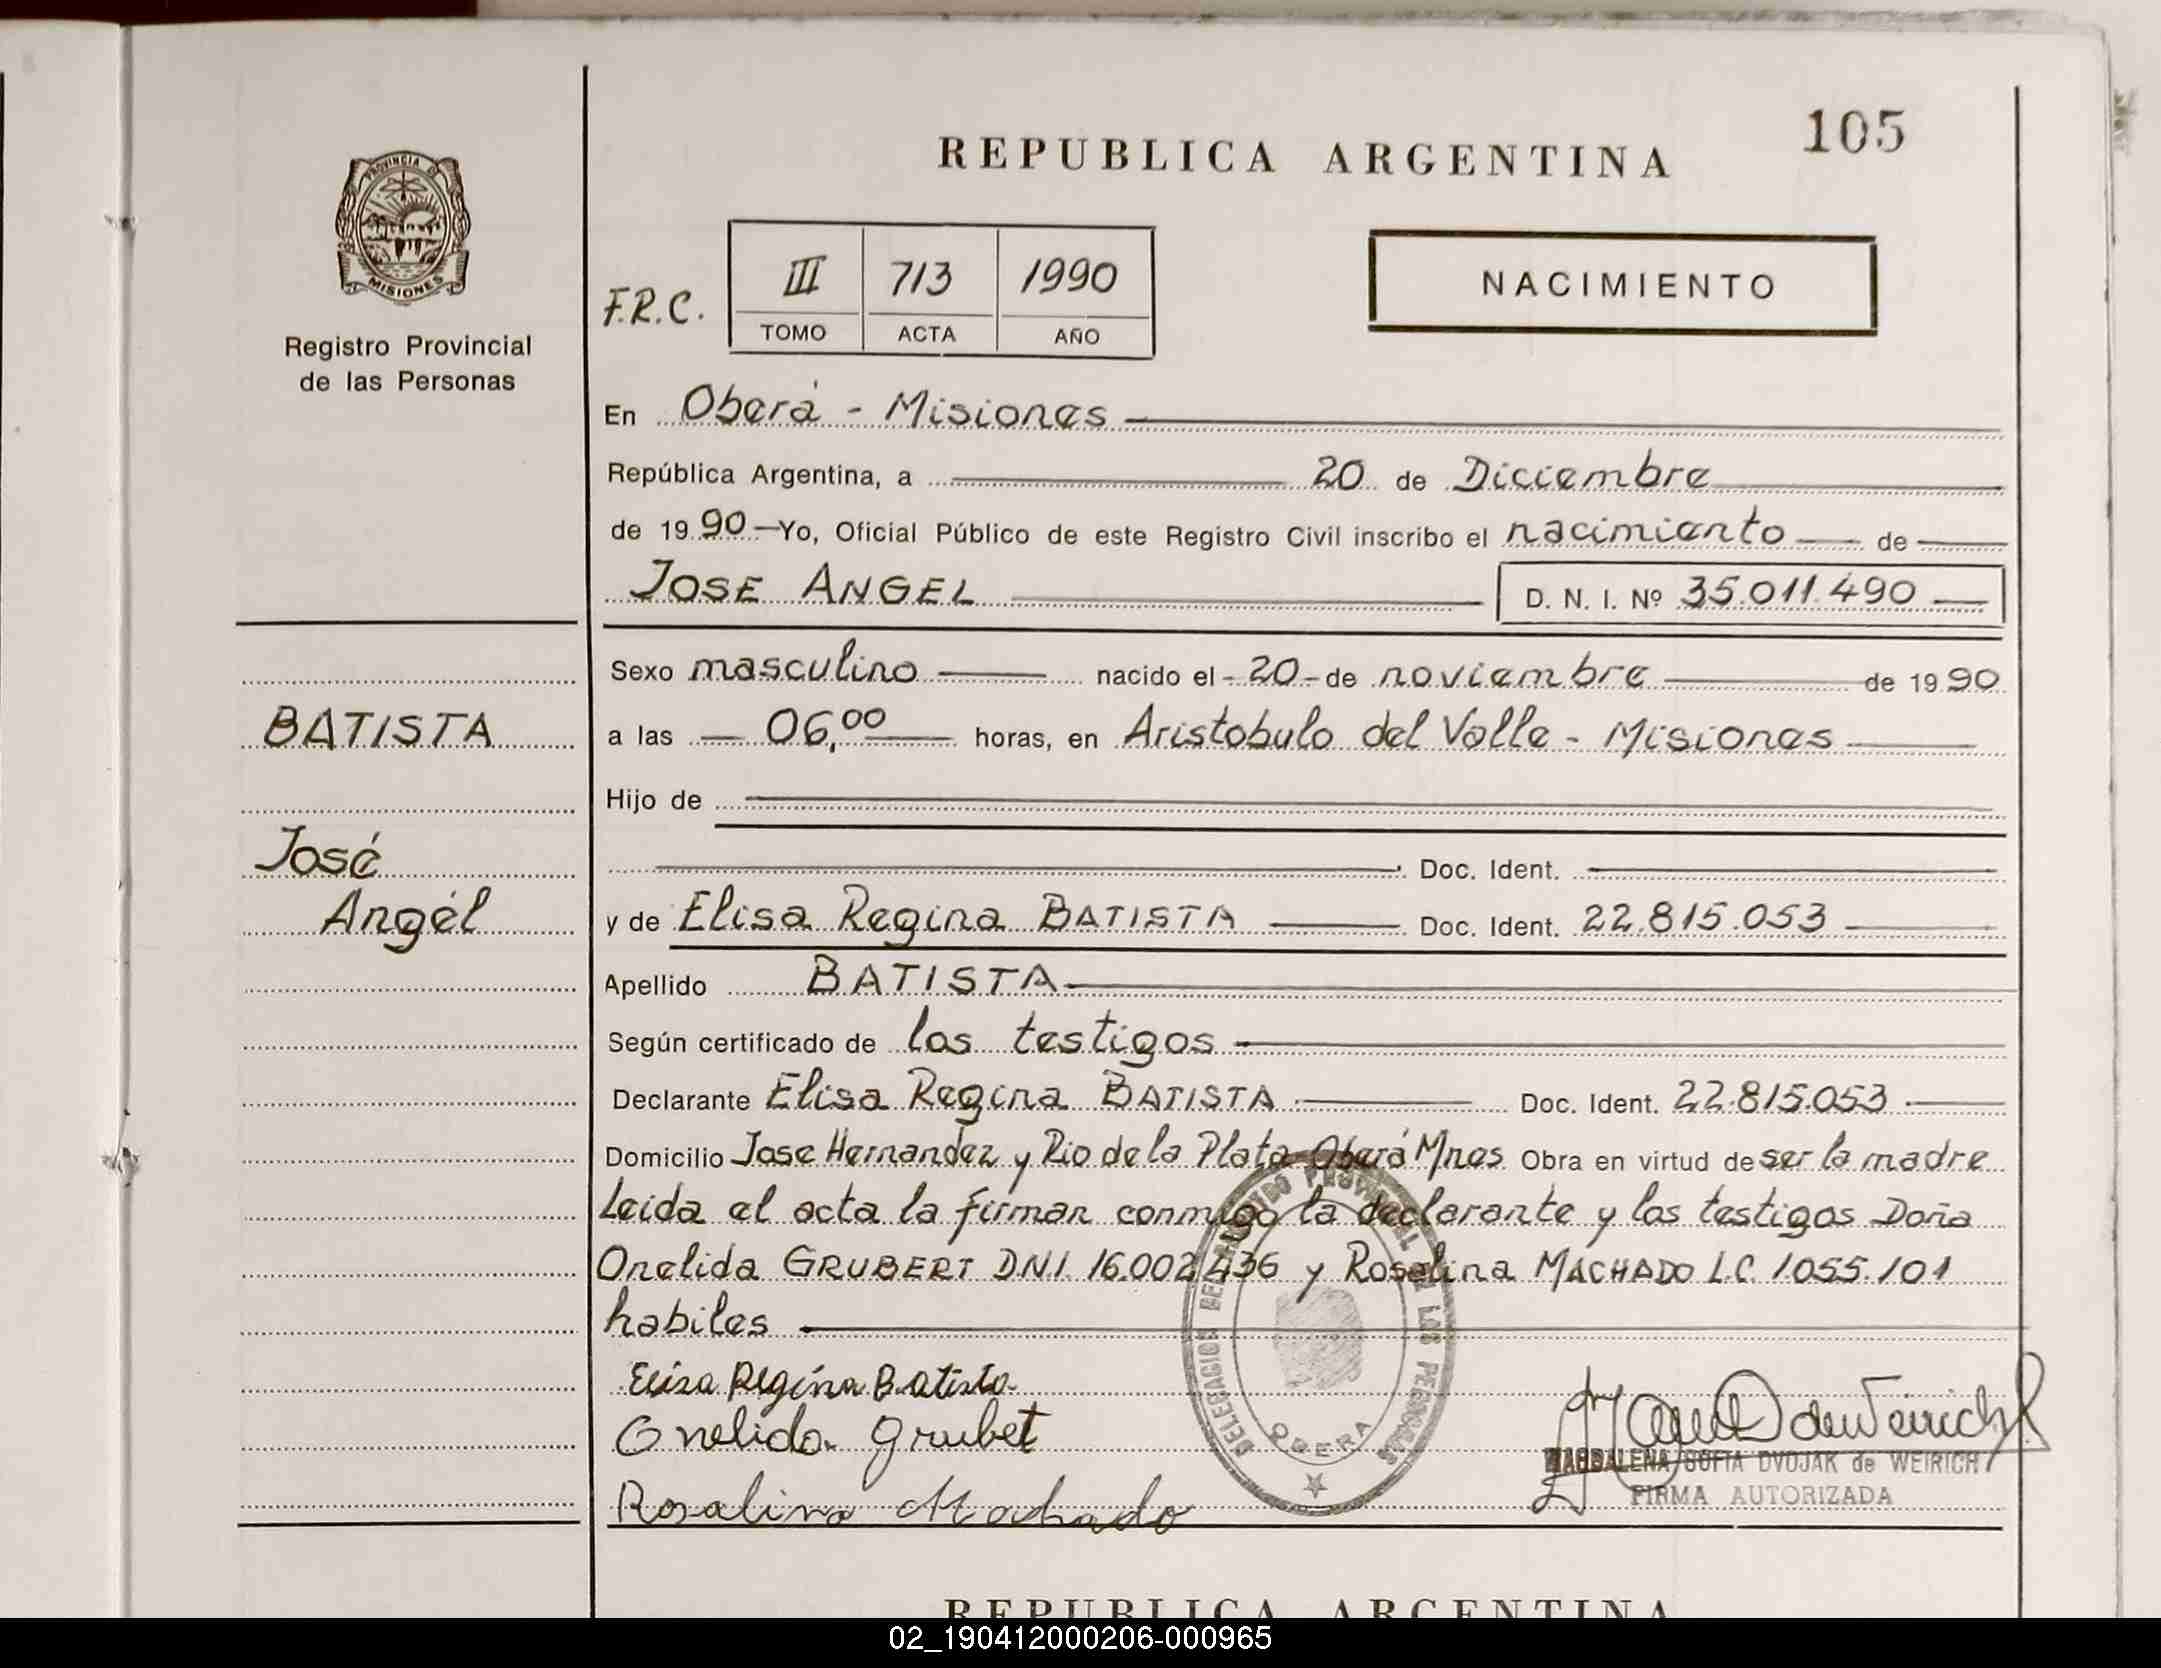 105
REPUBLICA ARGENTINA
PROVINCIA DE
MISIONES
Registro Provincial
de las Personas
F.R.C.
III 713 1990
TOMO ACTA AÑO
NACIMIENTO
En Oberá - Misiones
República Argentina, a 20 de Diciembre
de 19 90 Yo, Oficial Público de este Registro Civil inscribo el nacimiento de
JOSE ANGEL D. N. I. Nº 35.011.490
Sexo masculino nacido el - 20 - de noviembre de 19 90
BATISTA
a las 06,00 horas, en Aristobulo del Valle - Misiones
Hijo de
José
Doc. Ident.
Angél
y de Elisa Regina BATISTA Doc. Ident. 22.815.053
Apellido BATISTA
Según certificado de los testigos
Declarante Elisa Regina BATISTA Doc. Ident. 22.815.053
Domicilio Jose Hernandez y Rio de la Plata Oberá Mnes Obra en virtud de ser la madre
Leida el acta la firman conmigo la declarante y los testigos Doña
Onelida GRUBERT DNI. 16.002.436 y Rosalina MACHADO L.C. 1055.101
habiles
Elisa Regina Batista
Onelida Grubet
Rosalina Machado
DELEGACION DEL REGISTRO PROVINCIAL DE LAS PERSONAS
OBERA
de Weirich
MAGDALENA SOFIA DVOJAK de WEIRICH
FIRMA AUTORIZADA
REPUBLICA ARGENTINA
02_190412000206-000965